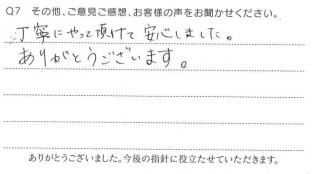 Q7 その他、ご意見ご感想、お客様の声をお聞かせください。
丁寧にやって頂けて安心しました。
ありがとうございます。
ありがとうございました。今後の指針に役立たせていただきます。